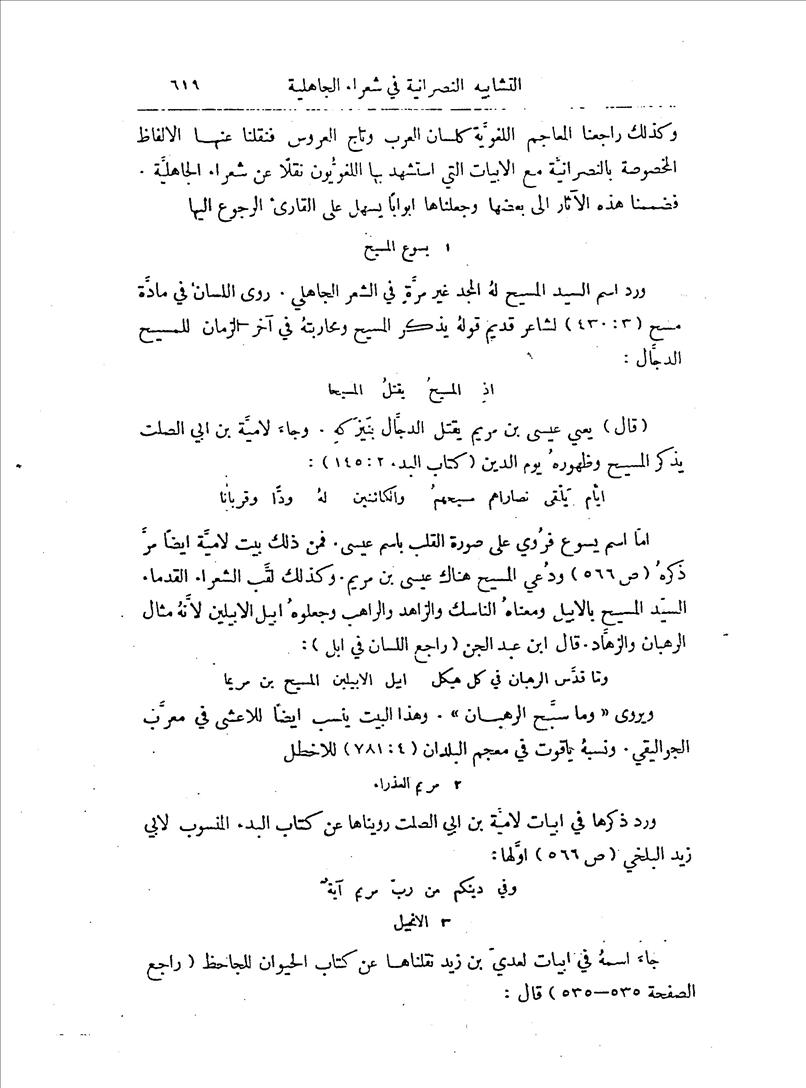 التشابيه النصرانية في شعراء الجاهلية ٦١٩
وكذلك راجعنا المعاجم اللغويَّة كلسان العرب وتاج العروس فنقلنا عنهـا الالفاظ
المخصوصة بالنصرانيَّة مع الابيات التي استشهد بها اللغويُّون نقلًا عن شعراء الجاهليَّة .
فضممنا هذه الآثار الى بعضها وجعلناها ابوابًا يسهل على القارئ الرجوع اليها
١ يسوع المسيح
ورد اسم السيد المسيح لهُ المجد غير مرَّةٍ في الشعر الجاهلي . روى اللسان في مادَّة
مسح (٣ : ٤٣٠) لشاعر قديم قولهُ يذكر المسيح ومحاربتهُ في آخر الزمان للمسيح
الدجَّال :
اذِ المسيحُ يقتلُ المسيحا
(قال) يعني عيسى بن مريم يقتل الدجَّال بنَيْزكهِ . وجاءَ لاميَّة بن ابي الصلت
يذكر المسيح وظهورهُ يوم الدين (كتاب البدء ٢ : ١٤٥) :
ايَّام يَلْقى نصاراهم مسيحهمُ والكائنين لهُ ودًّا وقربانا
امَّا اسم يسوع فرُوي على صورة القلب باسم عيسى . فمن ذلك بيت لاميَّة ايضًا مرَّ
ذكرهُ (ص ٥٦٦) ودُعي المسيح هناك عيسى بن مريم . وكذلك لقَّب الشعراء القدماء
السيّد المسيح بالابيل ومعناهُ الناسك والزاهد والراهب وجعلوهُ ابيل الابيلين لأنَّهُ مثال
الرهبان والزهَّاد . قال ابن عبد الجن (راجع اللسان في ابل) :
وما قدَّس الرهبان في كل هيكل ابيل الابيلين المسيح بن مريما
ويروى « وما سبَّح الرهبـان » . وهذا البيت ينسب ايضًا للاعشى في معرَّب
الجواليقي . ونسبهُ ياقوت في معجم البلدان (٤ : ٧٨١) للاخطل
٢ مريم العذراء
ورد ذكرها في ابيات لاميَّة بن ابي الصلت رويناها عن كتاب البدء المنسوب لابي
زيد البلخي (ص ٥٦٦) اوَّلها :
وفي دينكم من ربّ مريم آيةٌ
٣ الانجيل
جاءَ اسمهُ في ابيات لعديّ بن زيد نقلناهـا عن كتاب الحيوان للجاحظ (راجع
الصفحة ٥٣٥—٥٣٥) قال :